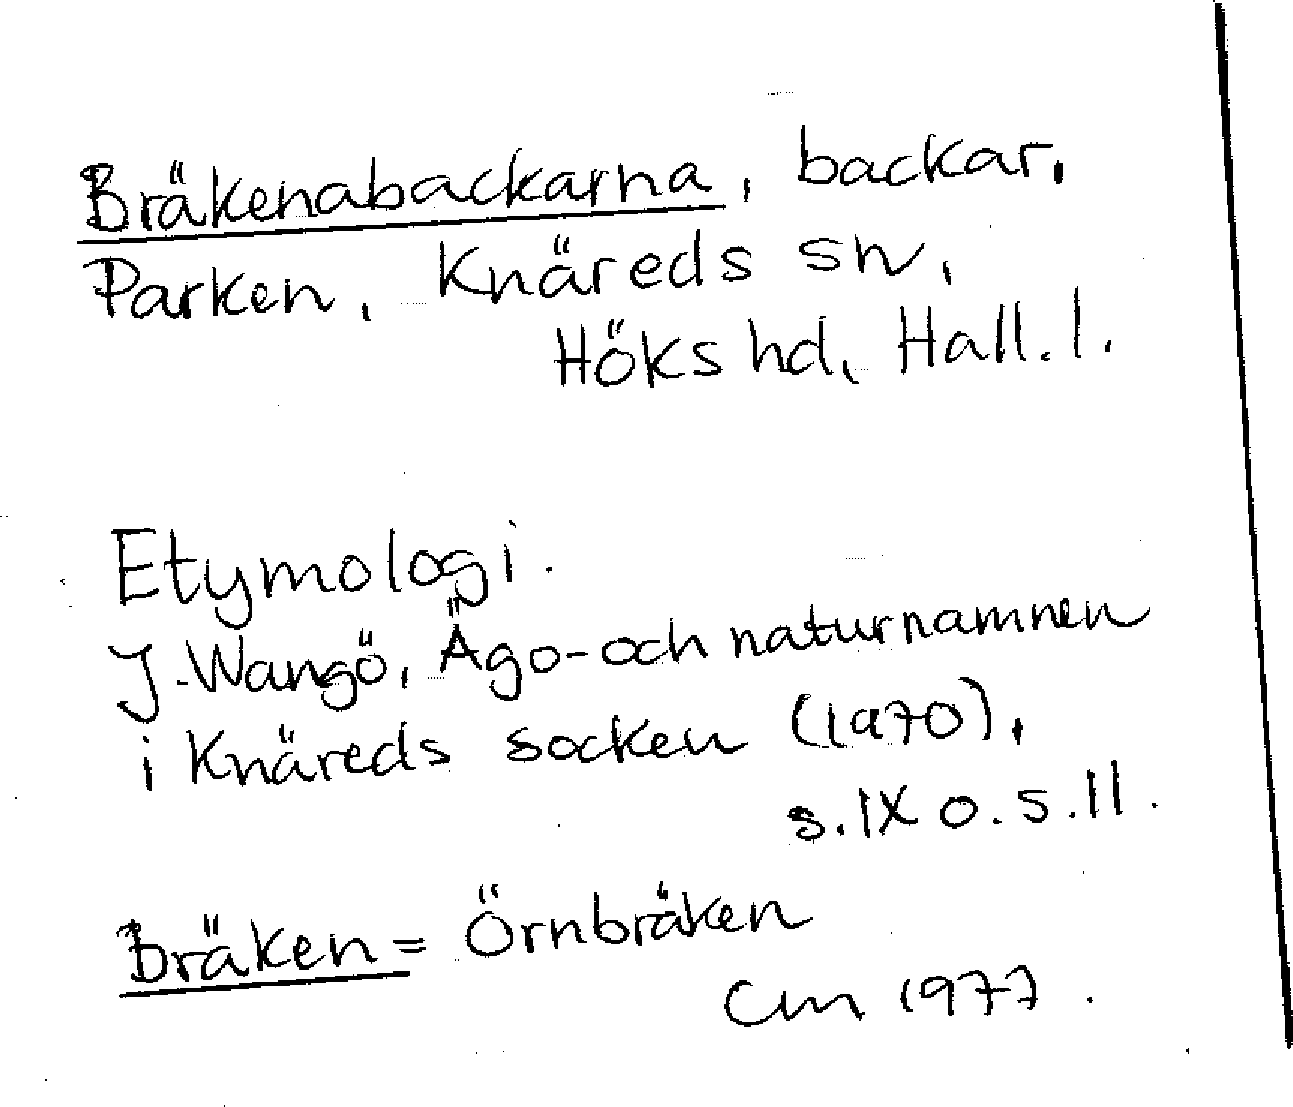 Bräkenabackarna, backar,
Parken, Knäreds sn,
Höks hd, Hall. l.
Etymologi.
J. Wangö, Ägo- och naturnamnen
i Knäreds socken (1970),
s. IX o. s. 11.
Bräken = Örnbräken
Cm 1977.